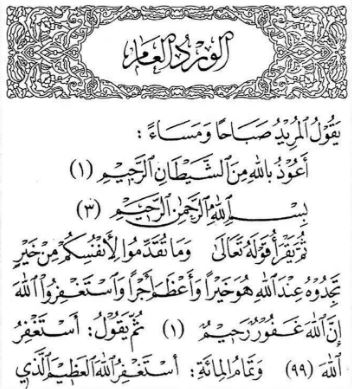 الوِرْدُ العَام
يَقُولُ المُرِيْدُ صَبَاحًا وَمَسَاءً :
أَعُوْذُ بِاللهِ مِنَ الشَّيْطَانِ الرَّجِيْمِ (١)
بِسْمِ اللهِ الرَّحْمٰنِ الرَّحِيْمِ (٣)
ثُمَّ يَقْرَأُ قَوْلَهُ تَعَالَى وَمَا تُقَدِّمُوا لِأَنْفُسِكُمْ مِنْ خَيْرٍ
تَجِدُوْهُ عِنْدَ اللهِ هُوَ خَيْرًا وَأَعْظَمَ أَجْرًا وَاسْتَغْفِرُوا اللهَ
إِنَّ اللهَ غَفُورٌ رَحِيْمٌ (١) ثُمَّ يَقُولُ: أَسْتَغْفِرُ
اللهَ (٩٩) وَتَمَامُ المِائَةِ: أَسْتَغْفِرُ اللهَ العَظِيْمَ الَّذِي